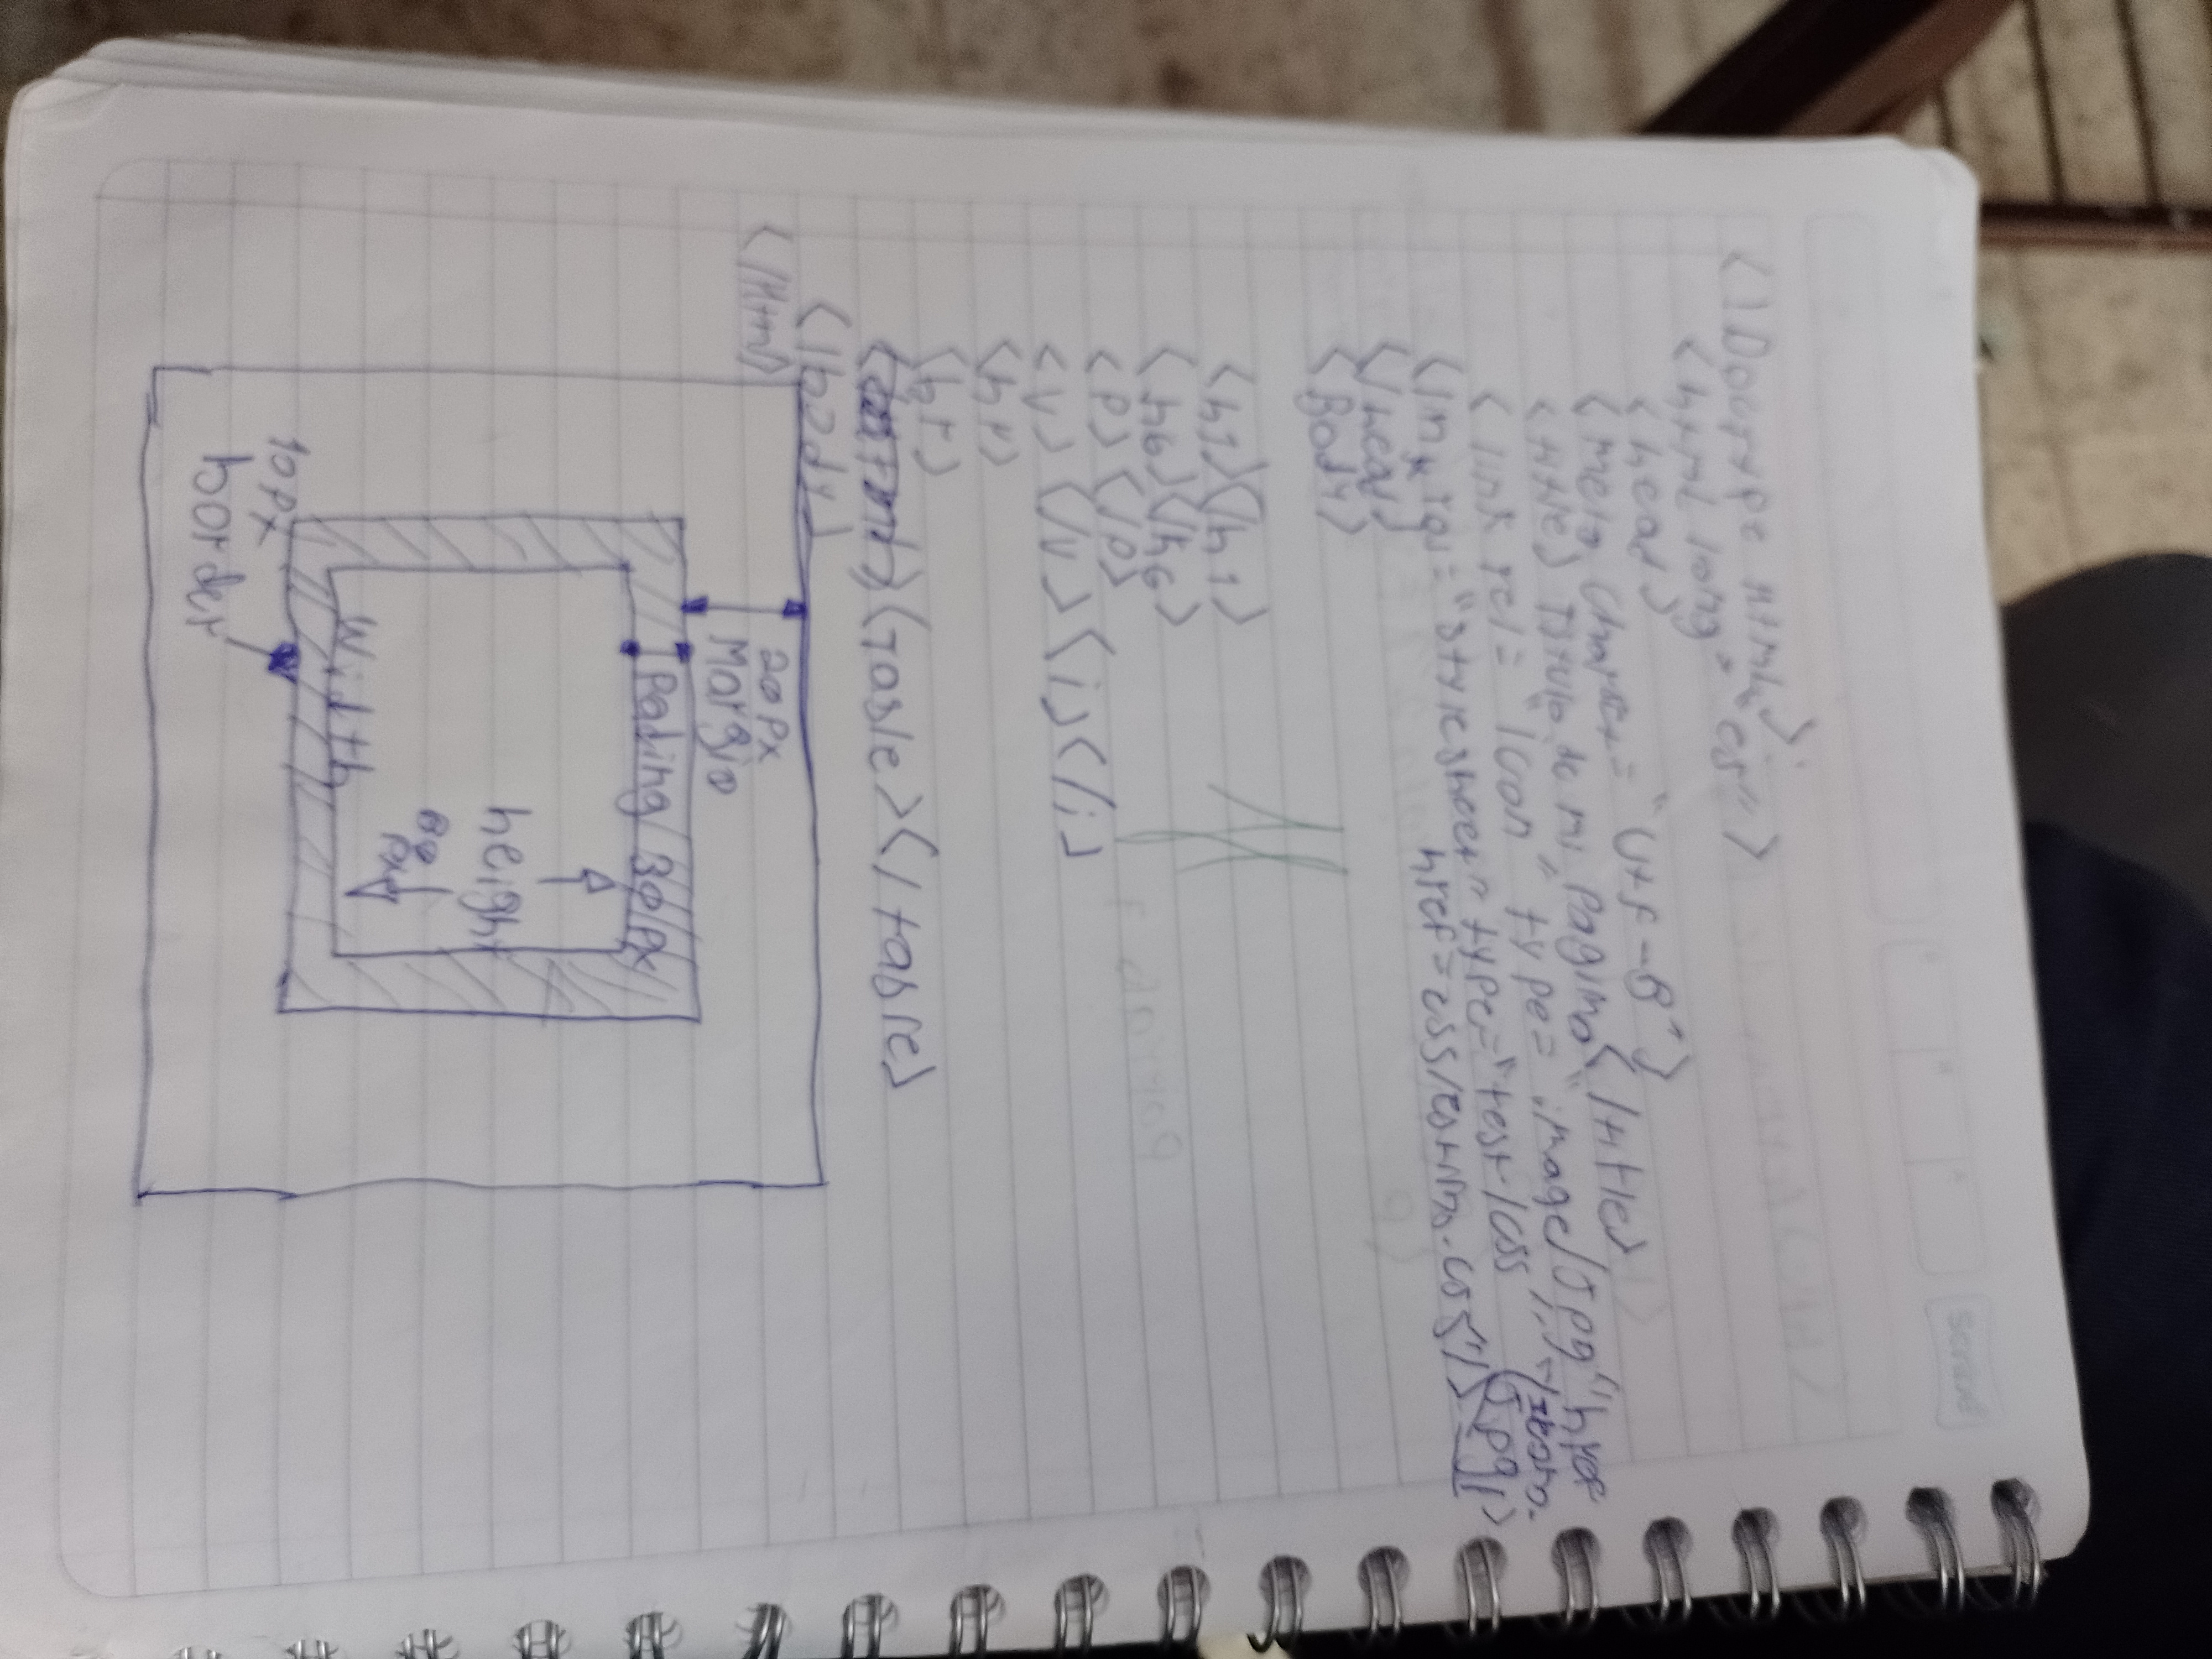 <!Doctype html>;
<html lang="es">
<head>
<meta Charset="utf-8">
<title> Titulo de mi Pagima </title>
<link rel="icon" type="image/Jpg" href
<link rel="stylesheet" type="test/css
Jpg/>
href=css/estilo.css"/>
</head>
<Body>
<h1></h1>
<h6></h6>
<p></p>
<U></U><i></i>
<hr>
<br>
<Table></table>
</body>
</Html>
20px
Margin
Pading 30px
height
80
Width
10px
border